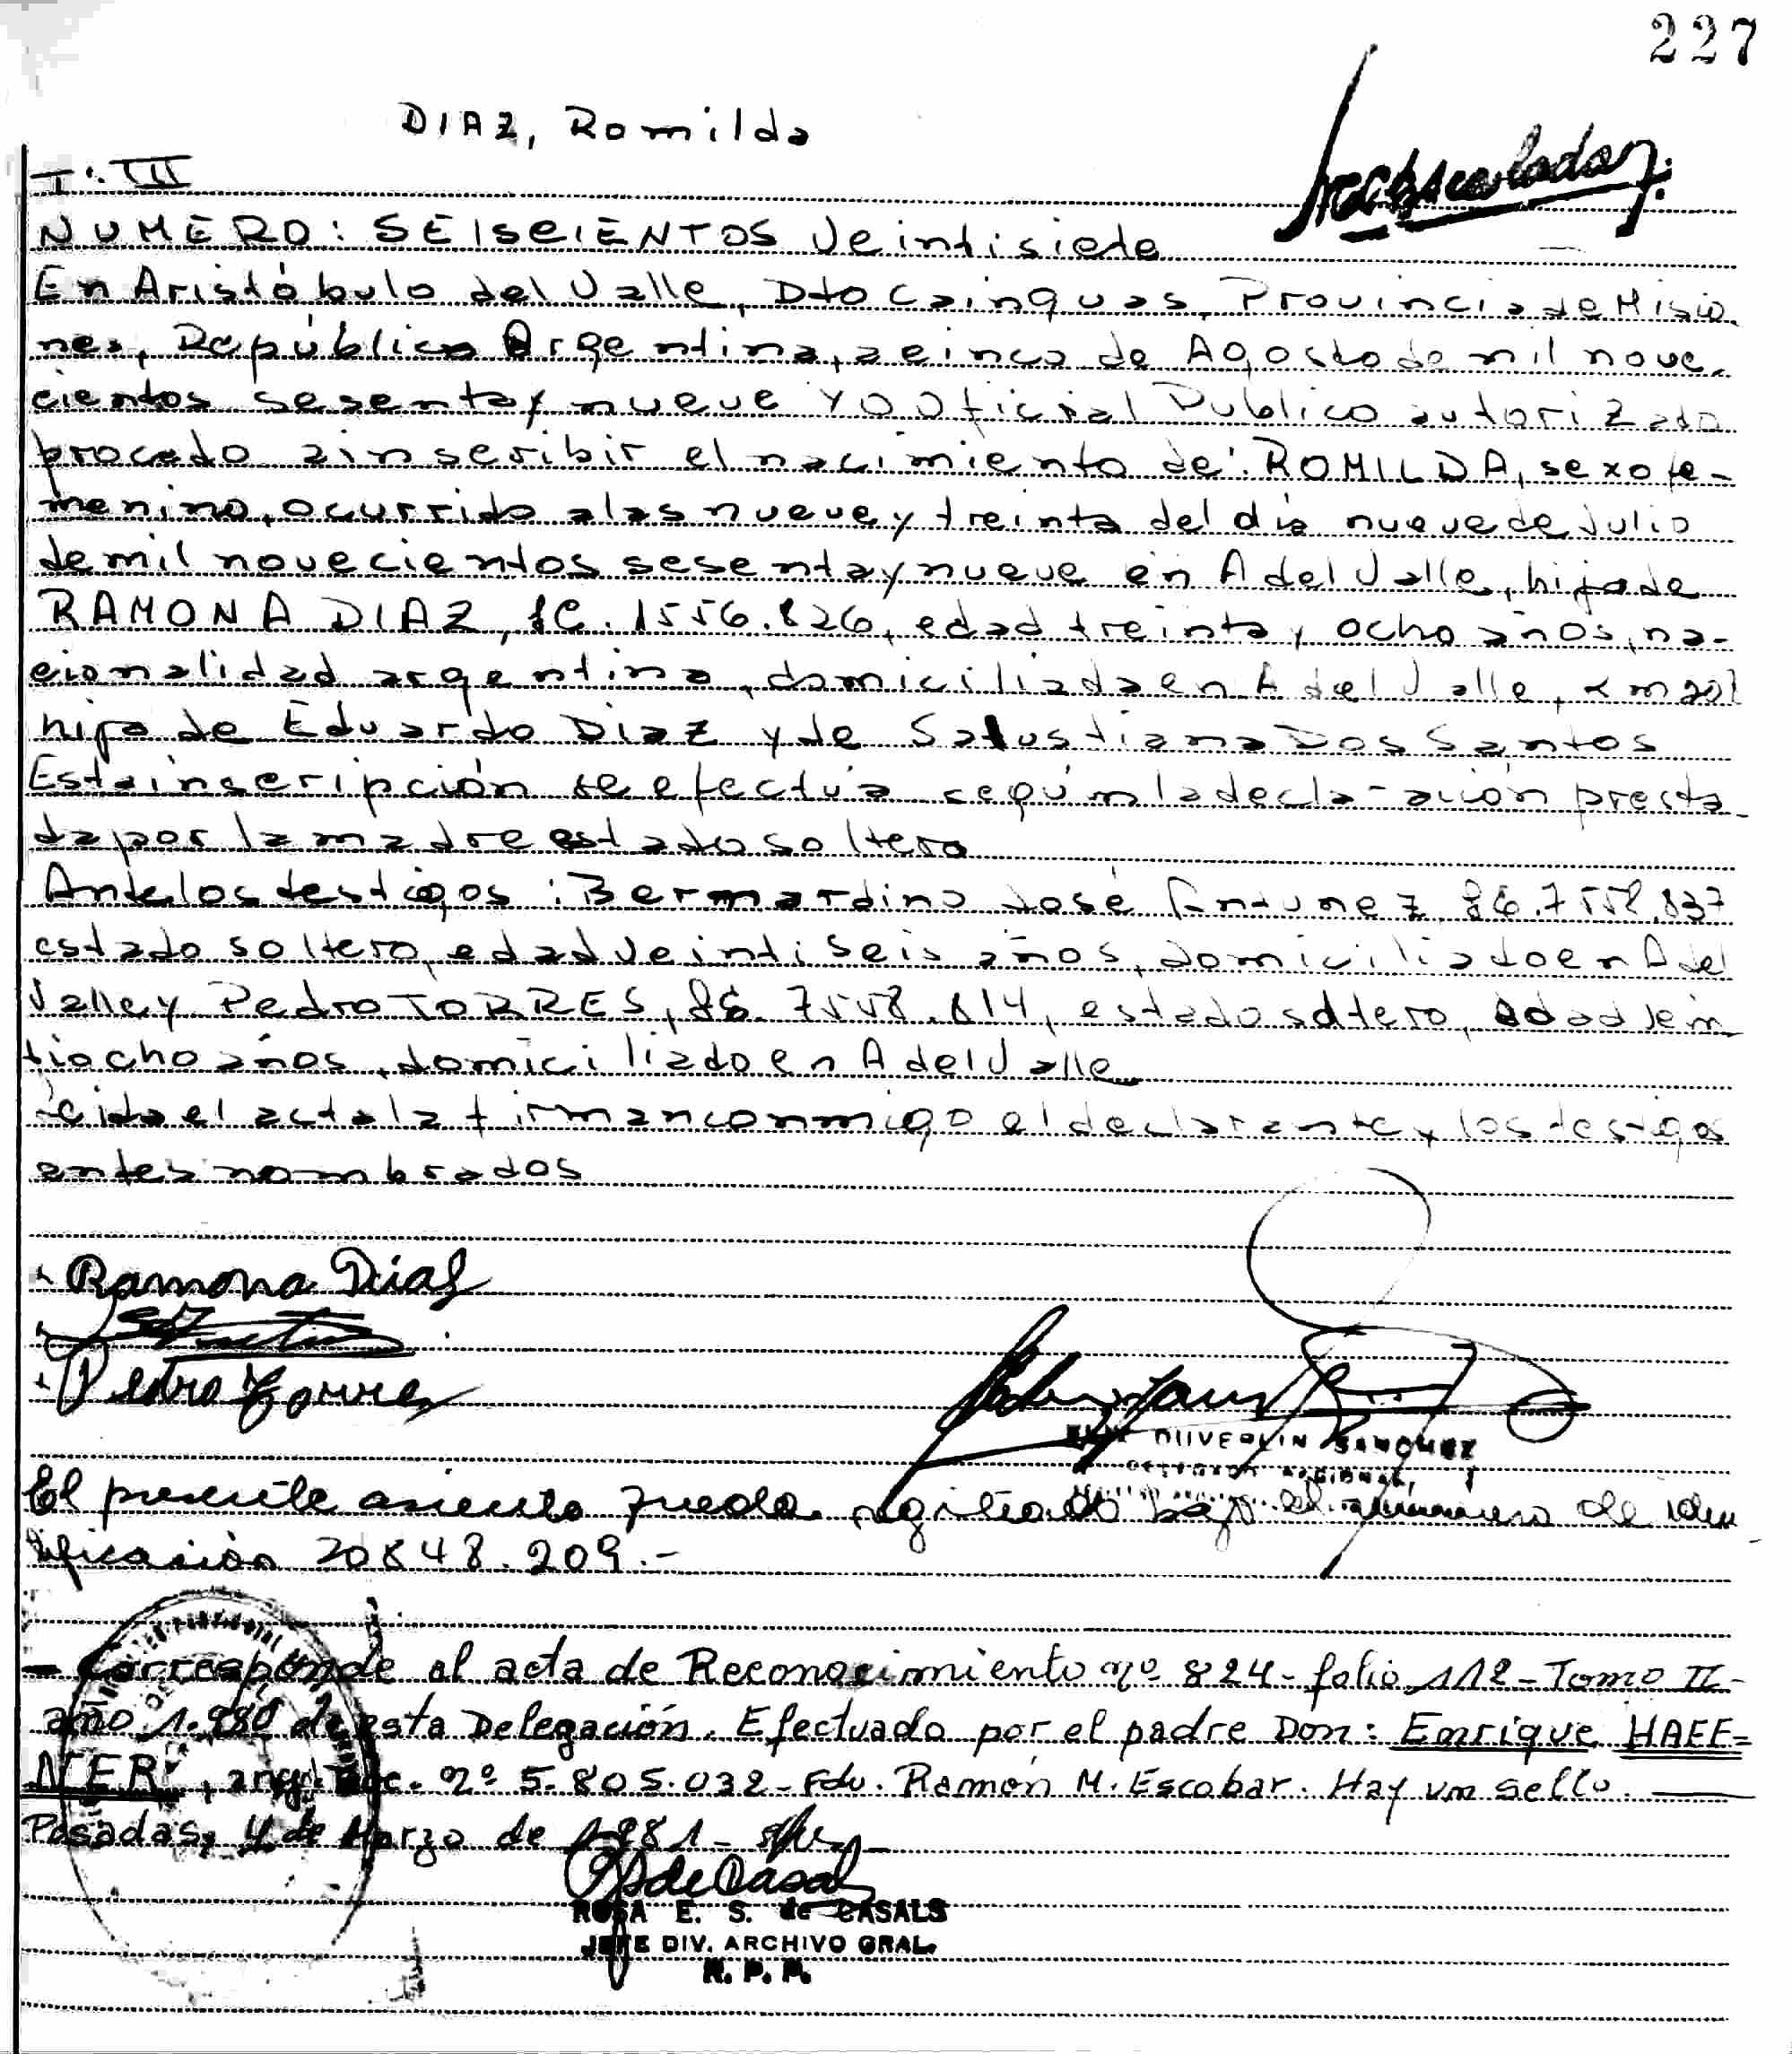 227
DIAZ, Romilda
T: III
NUMERO: SEISCIENTOS Veintisiete
En Aristóbulo del Valle, Dto Cainguas, Provincia de Misio
nes, República Argentina, a cinco de Agosto de mil nove
cientos sesenta y nueve YO Oficial Publico autorizado
procedo a inscribir el nacimiento de: ROMILDA, sexo fe-
menino, ocurrido a las nueve y treinta del día nueve de Julio
de mil novecientos sesenta y nueve en A del Valle, hija de
RAMONA DIAZ, 1556.826, edad treinta y ocho años, na-
cionalidad argentina, domiciliada en A del Valle, Km 201
hija de Eduardo Diaz y de Salustiana Dos Santos
Esta inscripción se efectúa según la declaración presta
da por la madre estado soltera
Ante los testigos: Bernardino José Antunez 7558.837
estado soltero, edad veintiseis años, domiciliado en A del
Valle y Pedro TORRES, 7558.814, estado soltero, edad vein
tiocho años, domiciliado en A del Valle
Leida el acta la firman conmigo el declarante y los testigos
antes nombrados
Ramona Diaz
Pedro Torres
DUVERLIN SANCHEZ
El presente asiento queda registrado bajo el numero de iden
tificación 20848.209.-
- Corresponde al acta de Reconocimiento nº 824- folio 112- Tomo II-
año 1.980 de esta Delegación. Efectuado por el padre Don: Enrique HAFF=
NER, arg. Doc. nº 5.805.032- Fdo. Ramón M. Escobar. Hay un sello.
Posadas, 4 de Marzo de 1981-
ROSA E. S. de CASALS
JEFE DIV. ARCHIVO GRAL.
R. P. P.